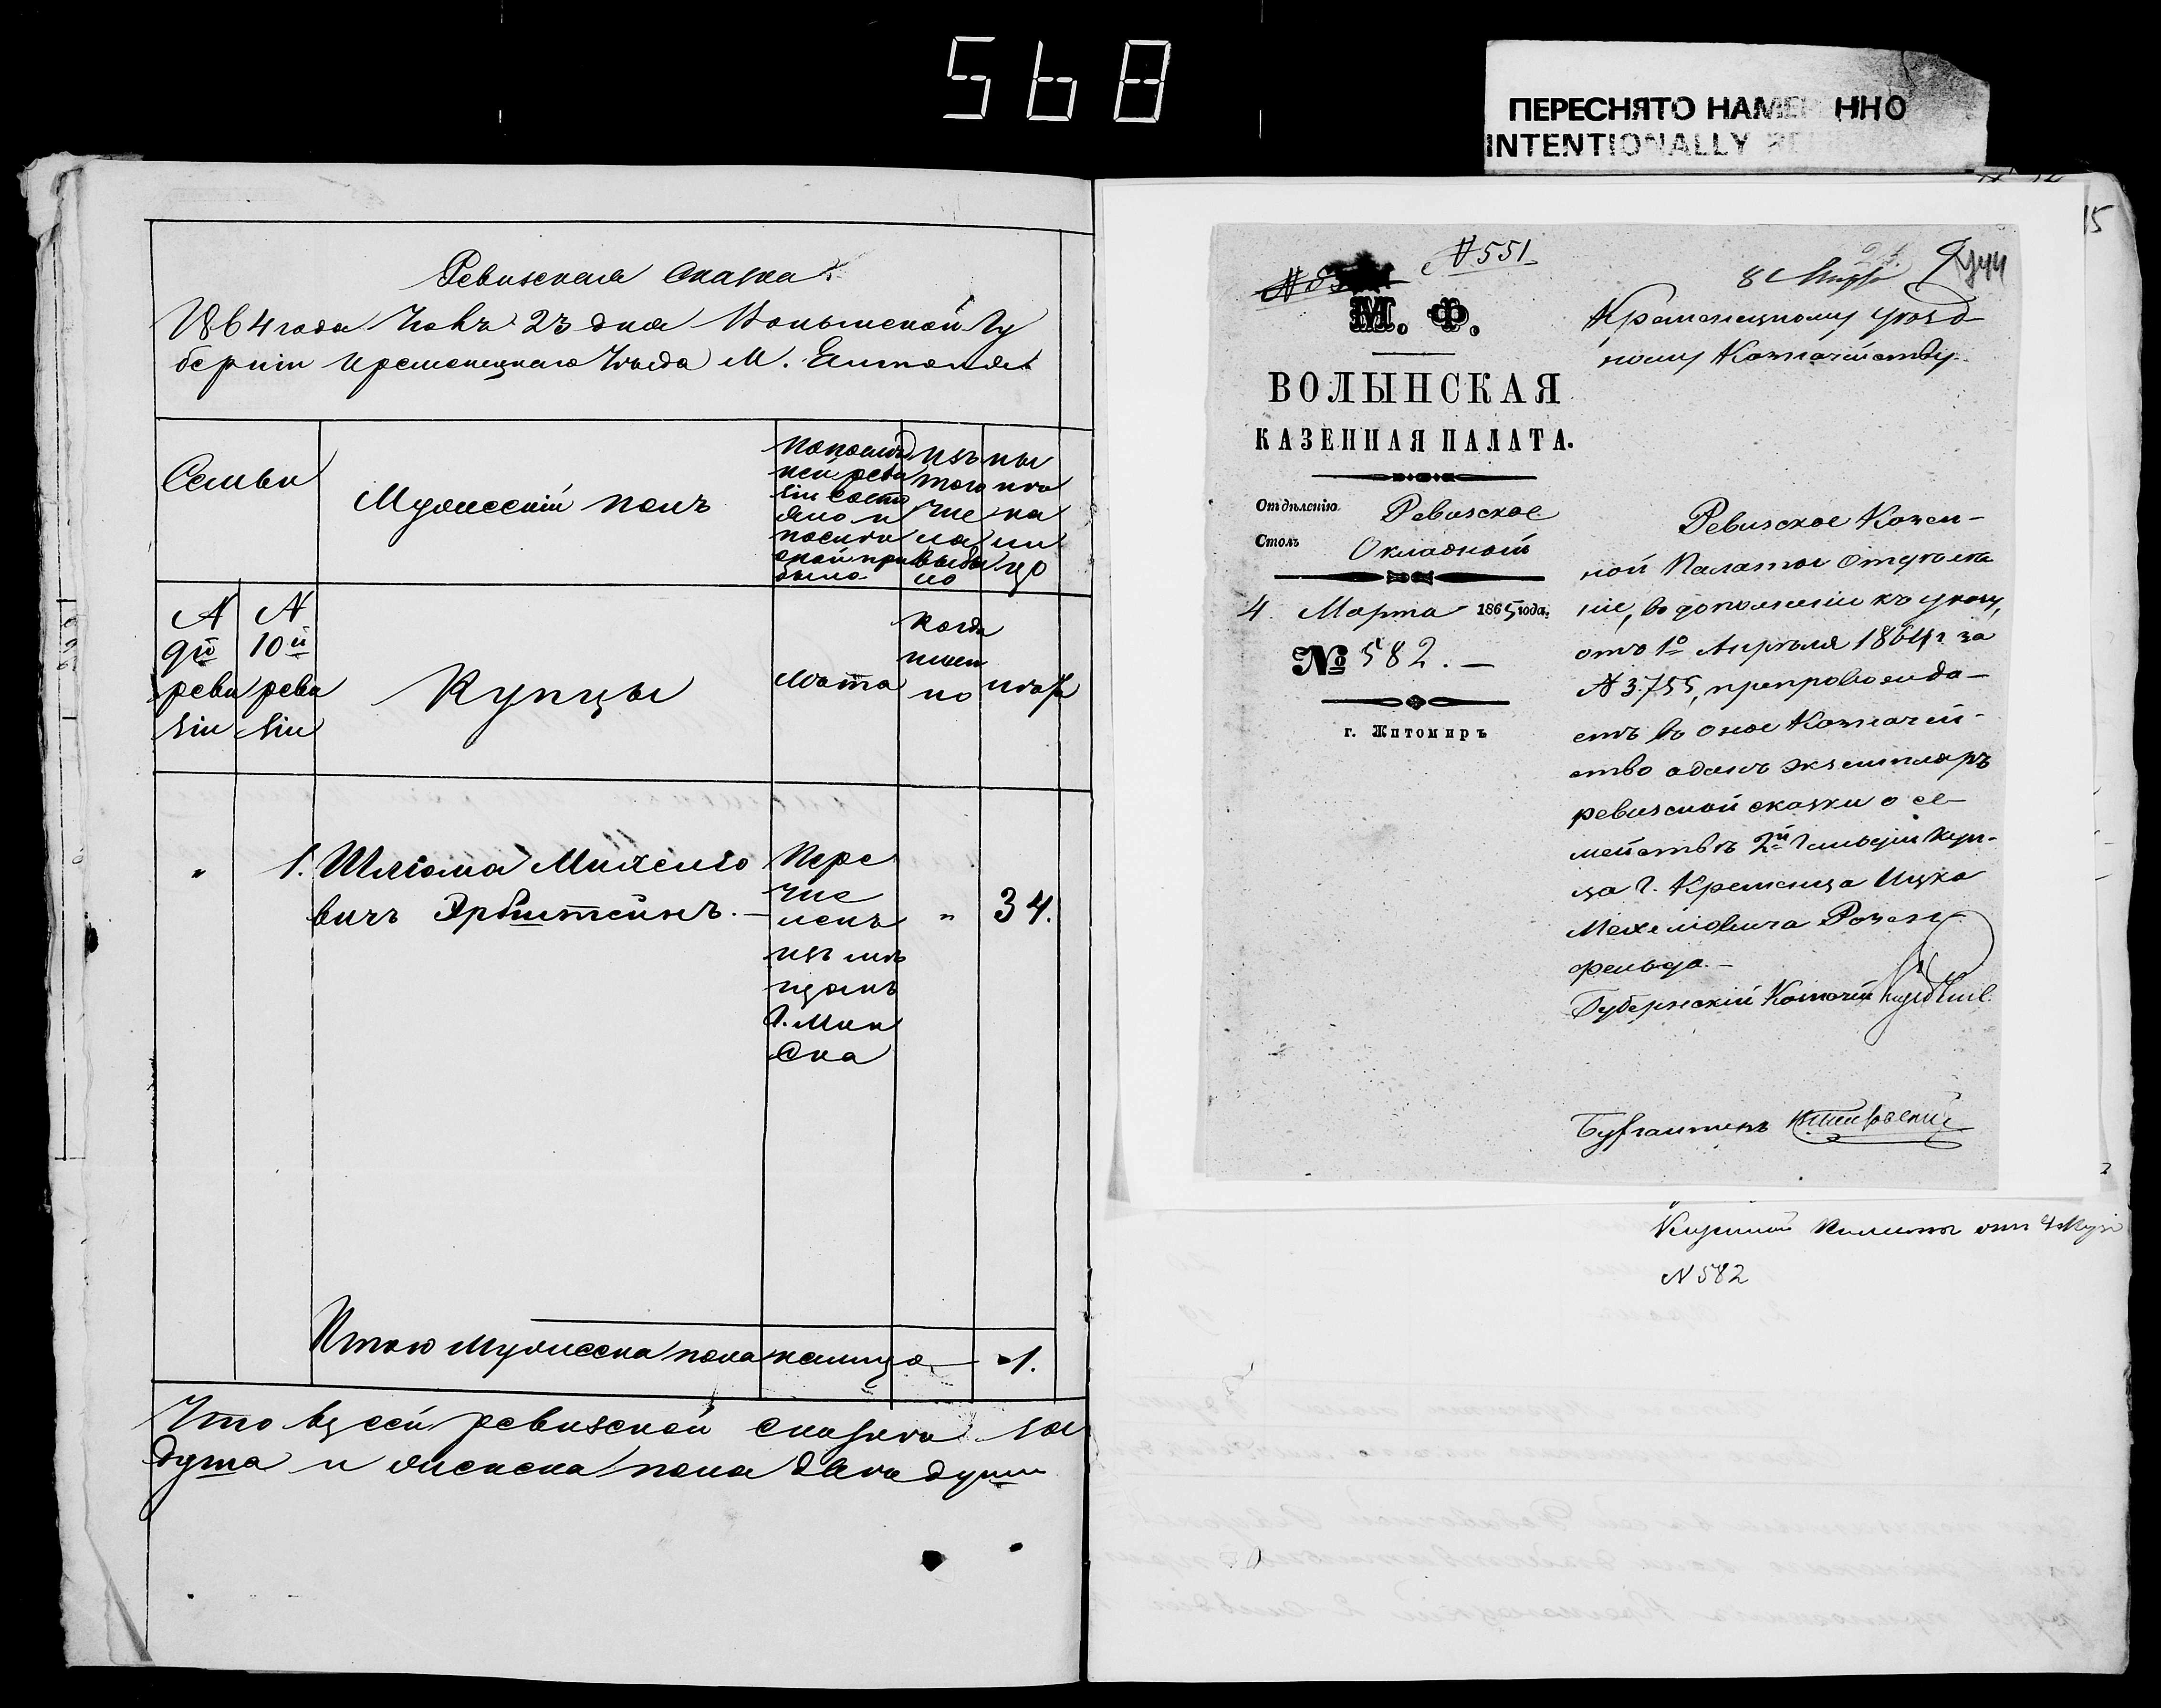 568
ПЕРЕСНЯТО НАМЕ ННО
INTENTIONALLY RE
Ревизская Сказка
1864 года 23 дня Волынской Гу
берніи Кременецкаго Уѣзда М.
Семьи
Мужескій полъ
По послѣд
ней реви
зіи состо
яло и
послѣ
оной при
было
Изъ
того
чис
ла
выбы
ло
Ны
нѣ
на
ли
цо
№
9й
реви
зіи
№
10й
реви
зіи
Купцы
Лѣта
Когда
имен
но
Лѣта
"
1. Шліома Михелео
вичъ Эрбштейнъ. —
Пере
чис
ленъ
изъ мѣ
щанъ
г. Мин
ска
"
34.
Итого Мужеска пола налицо — 1.
душа и женска пола двѣ души
15
№ 551
М. Ф.
ВОЛЫНСКАЯ
КАЗЕННАЯ ПАЛАТА.
Отдѣленіе Ревизское
Столъ Окладной
4 Марта 1865 года.
№ 582. —
г. Житомиръ
8 Марта
Кременецкому Уѣзд
ному Казначейству.
Ревизское Казен-
ной Палаты Отдѣле
ніе, въ дополненіе къ указу,
отъ 1го Апрѣля 1864 г. за
№ 3755, препровожда-
етъ въ оное Казначей-
ство одинъ экземпляръ
ревизской сказки о се-
мействѣ 2й Гильдіи куп-
ца г. Кременца Ицка
Мехелювича Розен-
фельда. —
Губернскій Казначей
Бухгалтеръ
Палаты отъ 4
№ 582